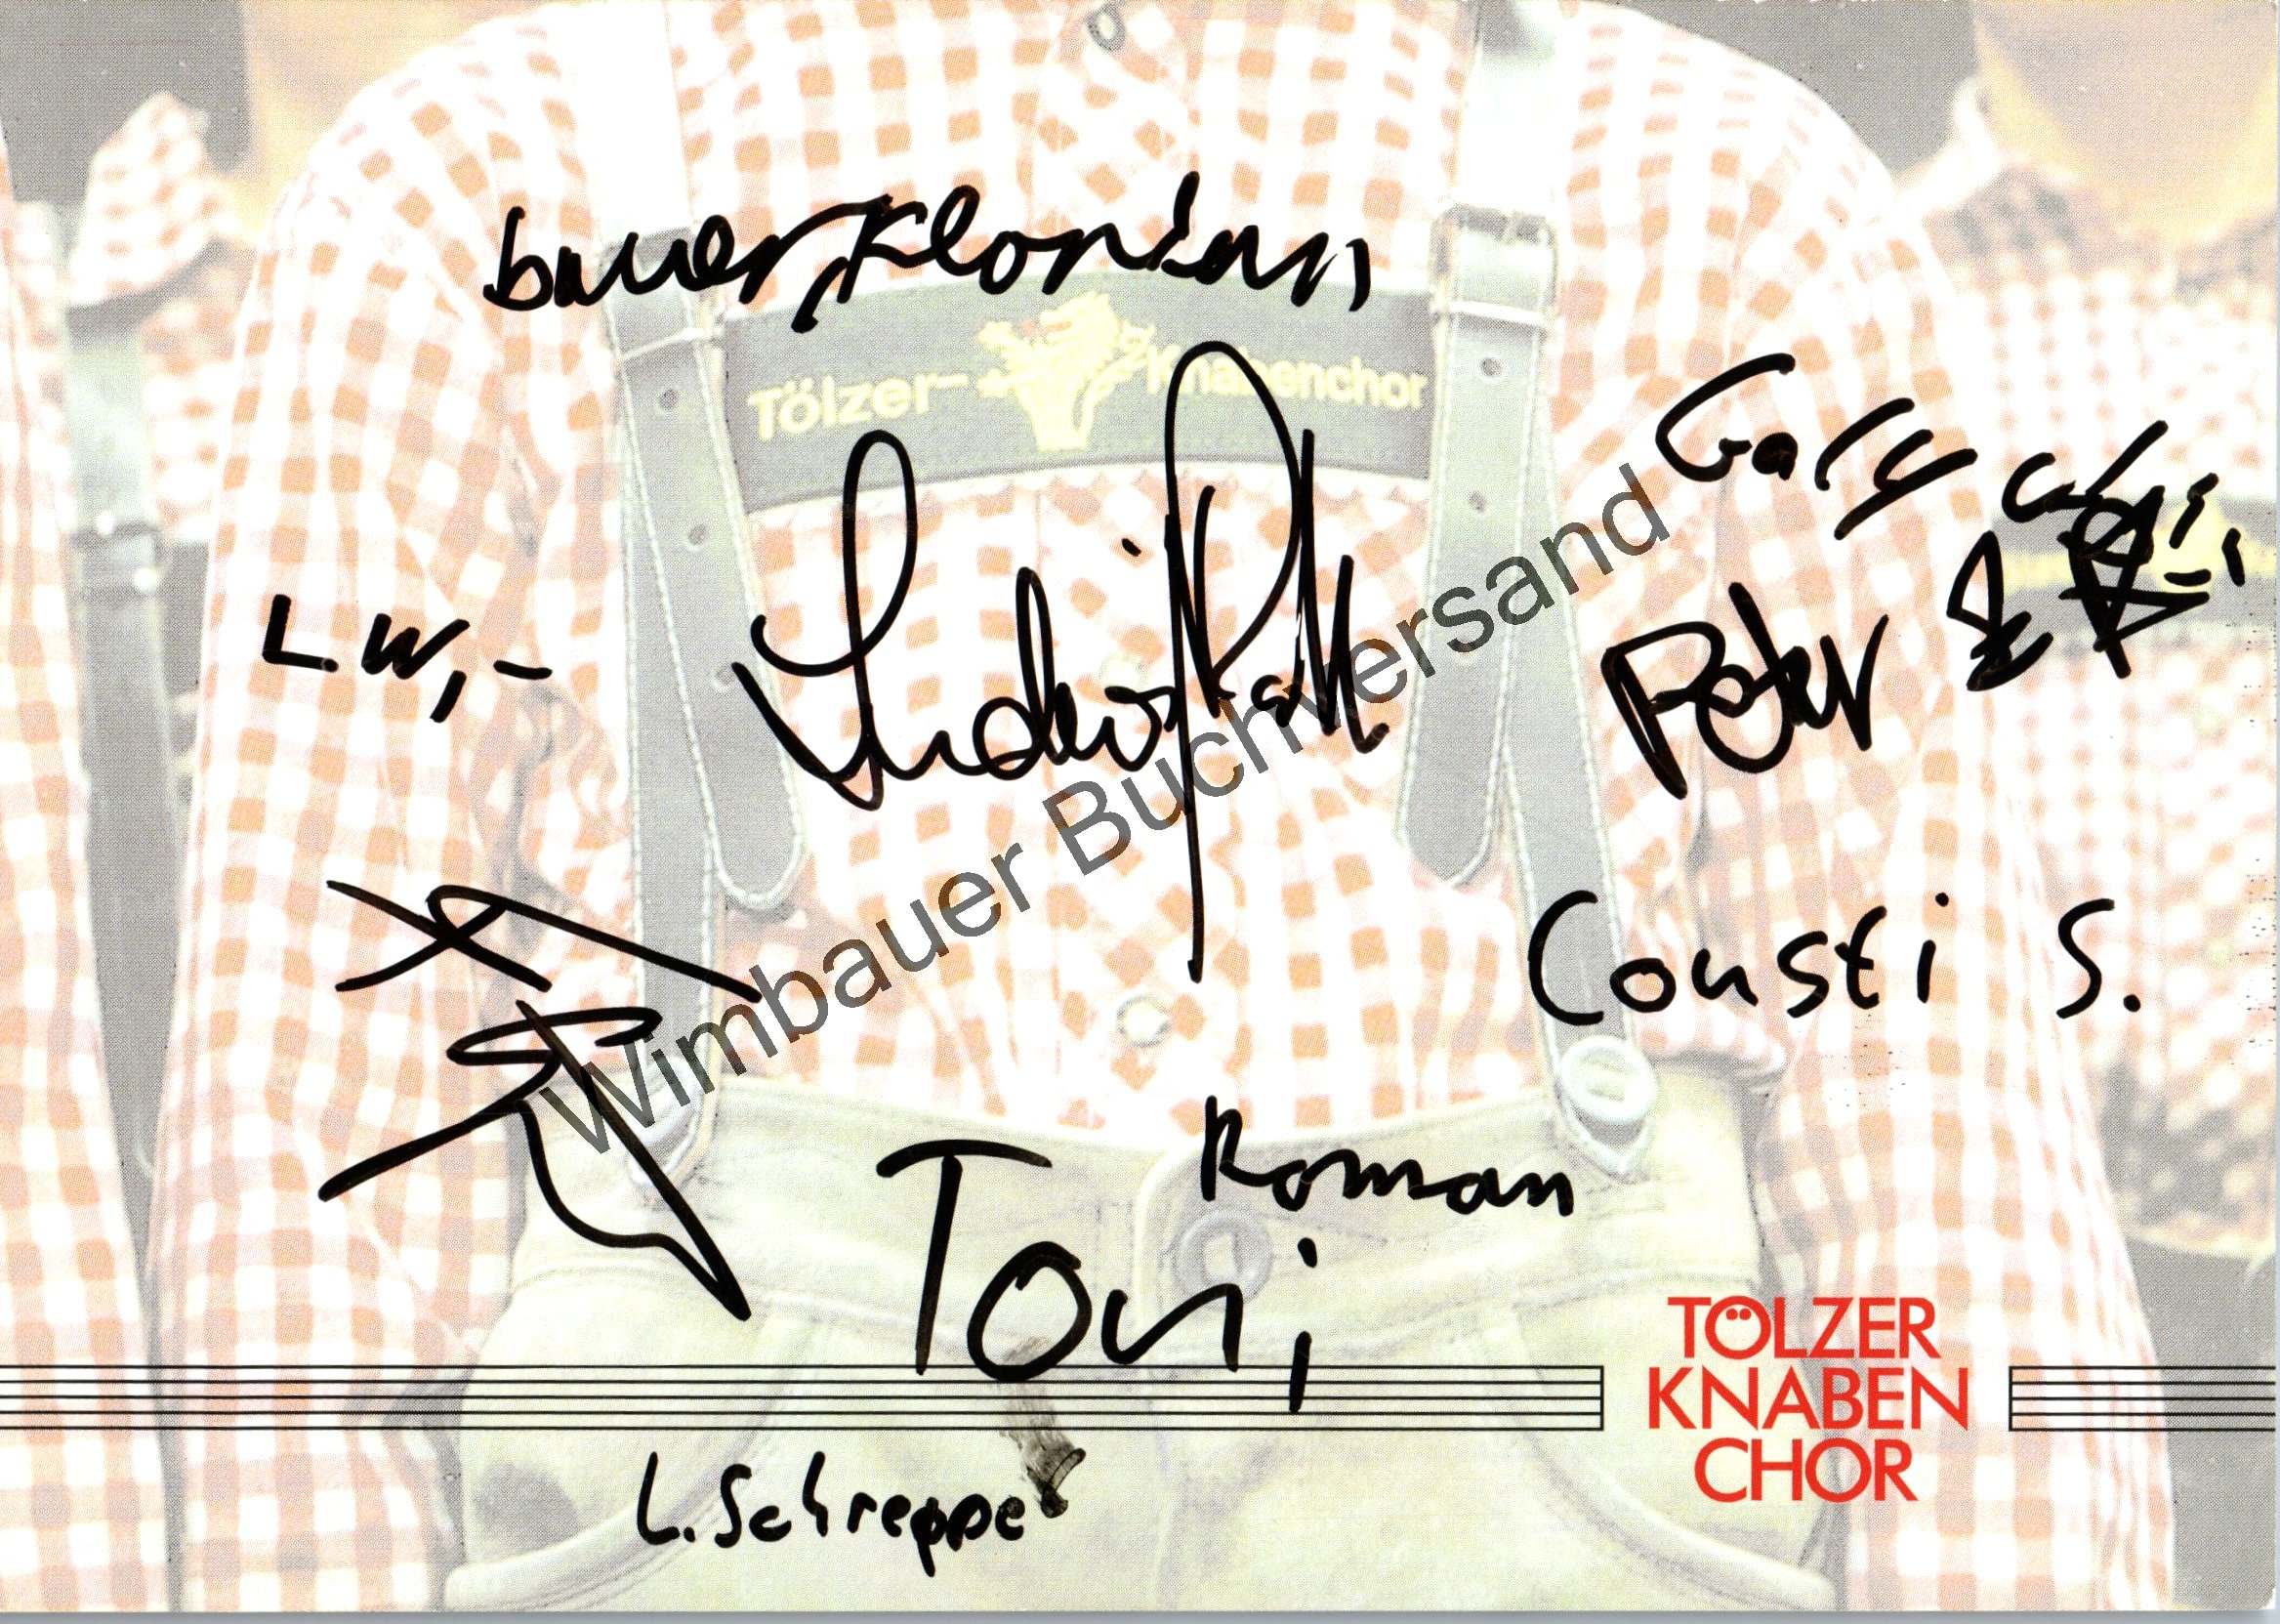 bauer, Florian
Tölzer- Knabenchor
Gary
L.W,-
Ludwig
Peter
Wimbauer Buchversand
Consti S.
Roman
Toni
TÖLZER
KNABEN
CHOR
L. Schrepper